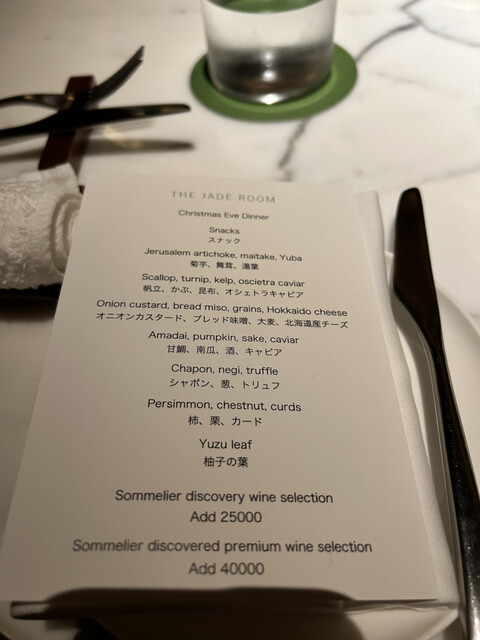 THE JADE ROOM
Christmas Eve Dinner
Snacks
スナック
Jerusalem artichoke, maitake, Yuba
菊芋、舞茸、湯葉
Scallop, turnip, kelp, oscietra caviar
帆立、かぶ、昆布、オシェトラキャビア
Onion custard, bread miso, grains, Hokkaido cheese
オニオンカスタード、ブレッド味噌、大麦、北海道産チーズ
Amadai, pumpkin, sake, caviar
甘鯛、南瓜、酒、キャビア
Chapon, negi, truffle
シャポン、葱、トリュフ
Persimmon, chestnut, curds
柿、栗、カード
Yuzu leaf
柚子の葉
Sommelier discovery wine selection
Add 25000
Sommelier discovered premium wine selection
Add 40000